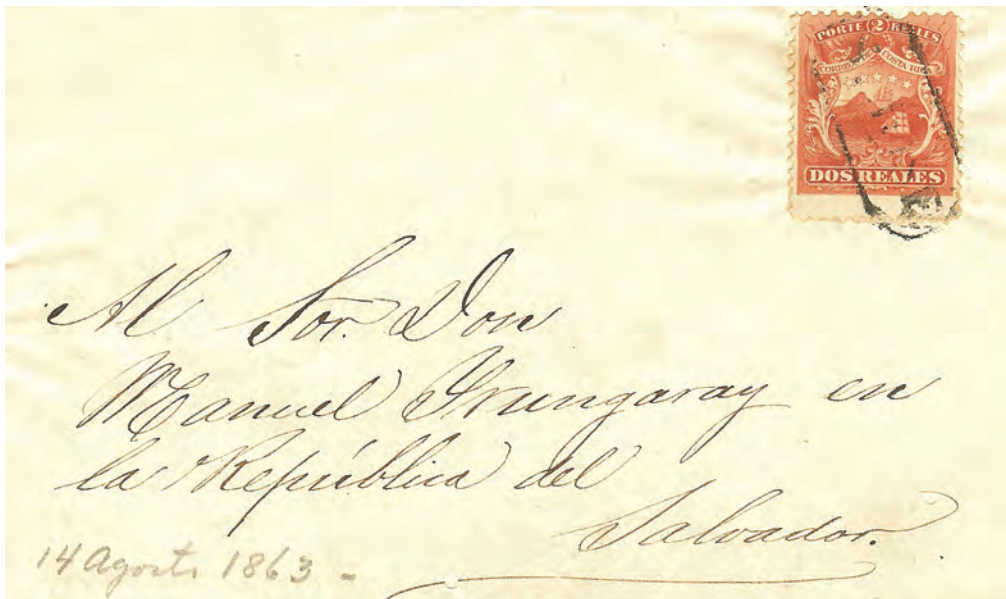 PORTE 2 REALES
CORREOS DE COSTA RICA
DOS REALES
Al Sor. Don
Manuel Yrungaray en
la República del
Salvador.
14 Agosto 1863 -